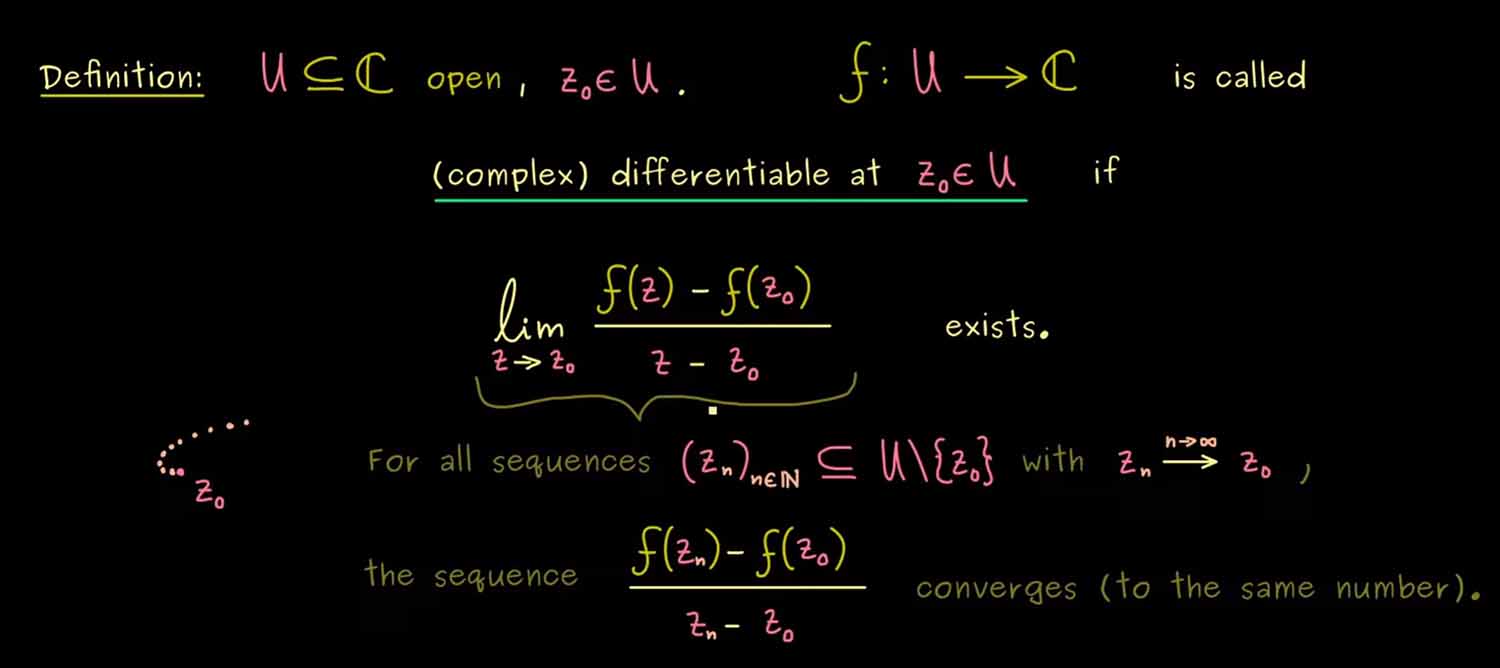 Definition: U ⊆ ℂ open, z₀ ∈ U. f: U → ℂ is called
(complex) differentiable at z₀ ∈ U if
lim f(z) - f(z₀) exists.
z → z₀ z - z₀
For all sequences (zₙ)ₙ∈ℕ ⊆ U\{z₀} with zₙ n→∞ ⟶ z₀,
z₀
the sequence f(zₙ) - f(z₀) converges (to the same number).
zₙ - z₀